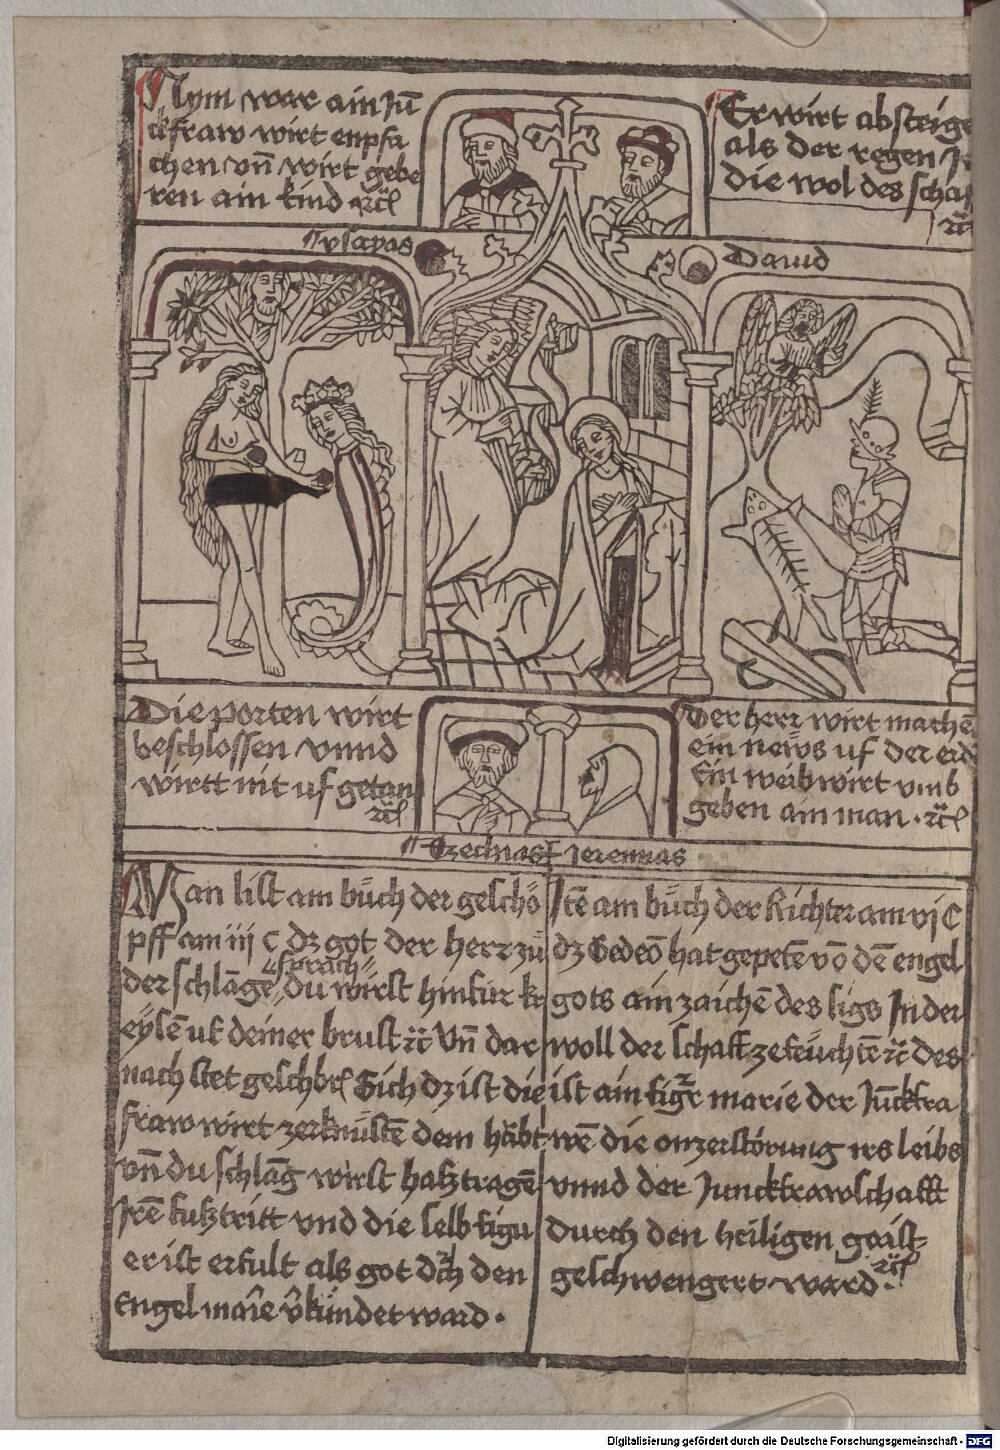 Nym war ain Jū
ckfraw wirt enpfa
chen vn̄ wirt gebe
ren ain kind ꝛc̄
Er wirt absteige
als der regen Jn
die wol des schaf
ꝛc̄
ysayas
Dauid
Die porten wirt
beschlossen vnnd
wirtt nit uf getan
ꝛc̄
Der herr wirt machē
ein neẅs uf der erd
Ein weib wirt vmb
geben ain man · ꝛc̄
Ezechias
Jeremias
Man list am bůch der geschö
pff am iij c dz got der herr zů
der schlāgē sprach du wirst hinfur kr
eÿsē uf deiner brust ꝛc̄ Vn̄ dar
nach stet geschbr̄ Sich dz ist die
fraw wirt zerknüstē dem häbt
vn̄ du schlāg wirst haſztragē
Jrē fuſztritt vnd die selb figu
er ist erfult als got dch den
Engel marie v̄kündet ward ·
Jtē am bůch der Richter am vj C
dz Gedeō hat gepetē vō dē engel
gots ain zaichē des sigs Jn der
woll der schaff ze feüchtē ꝛc̄ des
ist ain figr marie der Jūckfra
wē die onzerstörung irs leibs
vnnd der Junckfrawschafft
durch den heiligen gaist
geschwengert ward · ꝛc̄
Digitalisierung gefördert durch die Deutsche Forschungsgemeinschaft - DFG